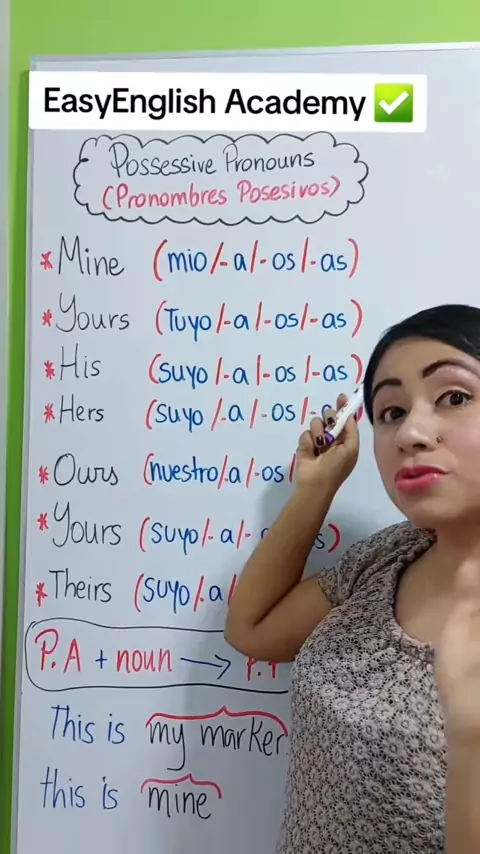 EasyEnglish Academy ✅
Possessive Pronouns
(Pronombres Posesivos)
* Mine (mio/-a/-os/-as)
* Yours (Tuyo/-a/-os/-as)
* His (suyo/-a/-os/-as)
* Hers (suyo/-a/-os/
* Ours (nuestro/.a/-os/
* Yours (suyo/-a/- s)
* Theirs (suyo/.a/
P.A + noun → P.
This is my marker
this is mine